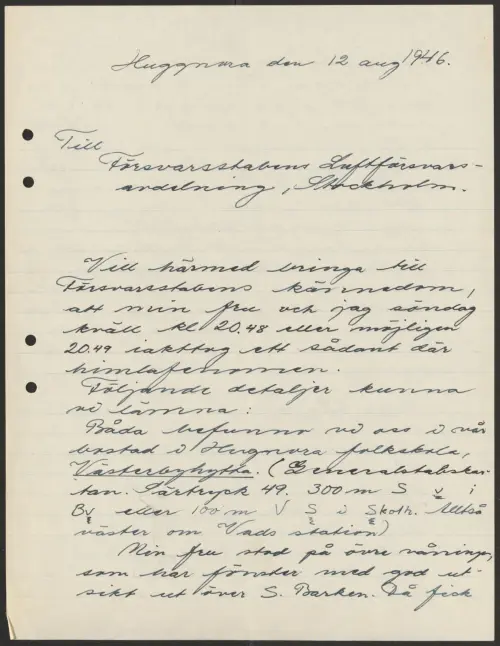 Huggnora den 12 aug 1946.
Till
Försvarsstabens Luftförsvars-
avdelning, Stockholm.
Vill härmed bringa till
Försvarsstabens kännedom,
att min fru och jag söndag
kväll kl 20.48 eller möjligen
20.49 iakttog ett sådant där
himlafenomen.
Följande detaljer kunna
vi lämna:
Båda befunno vi oss i vår
bostad i Hugnora folkskola,
Västerbyhytta. (Generalstabskar-
tan. Särtryck 49. 300 m S v i
Bv eller 100 m V S i Skoth. Alltså
väster om Vads station)
Min fru stod på övre våningen,
som har fönster med god ut-
sikt ut över S. Barken. Då fick